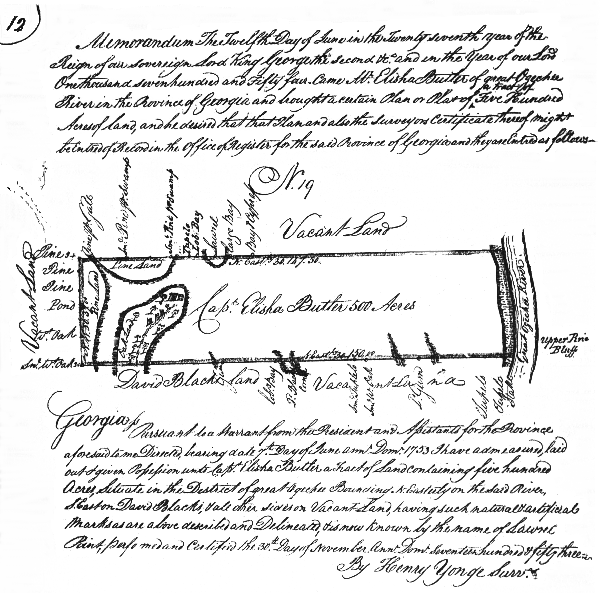 12
Memorandum The Twelfth Day of June in the Twenty seventh year of the
Reign of our Sovereign Lord King George the Second &c. and in the Year of our Lord
One thousand seven hundred and Fifty four Came Mr. Elisha Butler of great Ogechee
River in the Province of Georgia and brought a certain Plan or Plat of a Tract of Five Hundred
Acres of Land, and he desired that that Plan and also the Surveyors Certificate thereof might
be Entred of Record in the Office of Register for the said Province of Georgia and they are Entred as follows
No. 19
Vacant Land
Pine Land
Vacant Land
Pine
Pine
Pine
Pond
Wt. Oak
Sm. Wt. Oak
Capt. Elisha Butler 500 Acres
Great Ogeche River
Upper Pine Bluff
David Blacks Land
Vacant Land
Stake
Georgia
Pursuant to a Warrant from the President and Assistants for the Province
aforesaid to me Directed, bearing date 7th. Day of June ann: Dom: 1753 I have admeasured, laid
out & given Possession unto Capt. Elisha Butler a tract of Land containing five hundred
Acres, Situate in the District of great Ogechee Bounding Easterly on the said River,
Black's, & all other sides on Vacant Land, having such natural & artificial
Marks as are above described and Delineated, & is now known by the name of Lawrel
Point, performed and Certified the 30th. Day of November Ann: Dom: Seventeen hundred & fifty three
By Henry Yonge Surv.